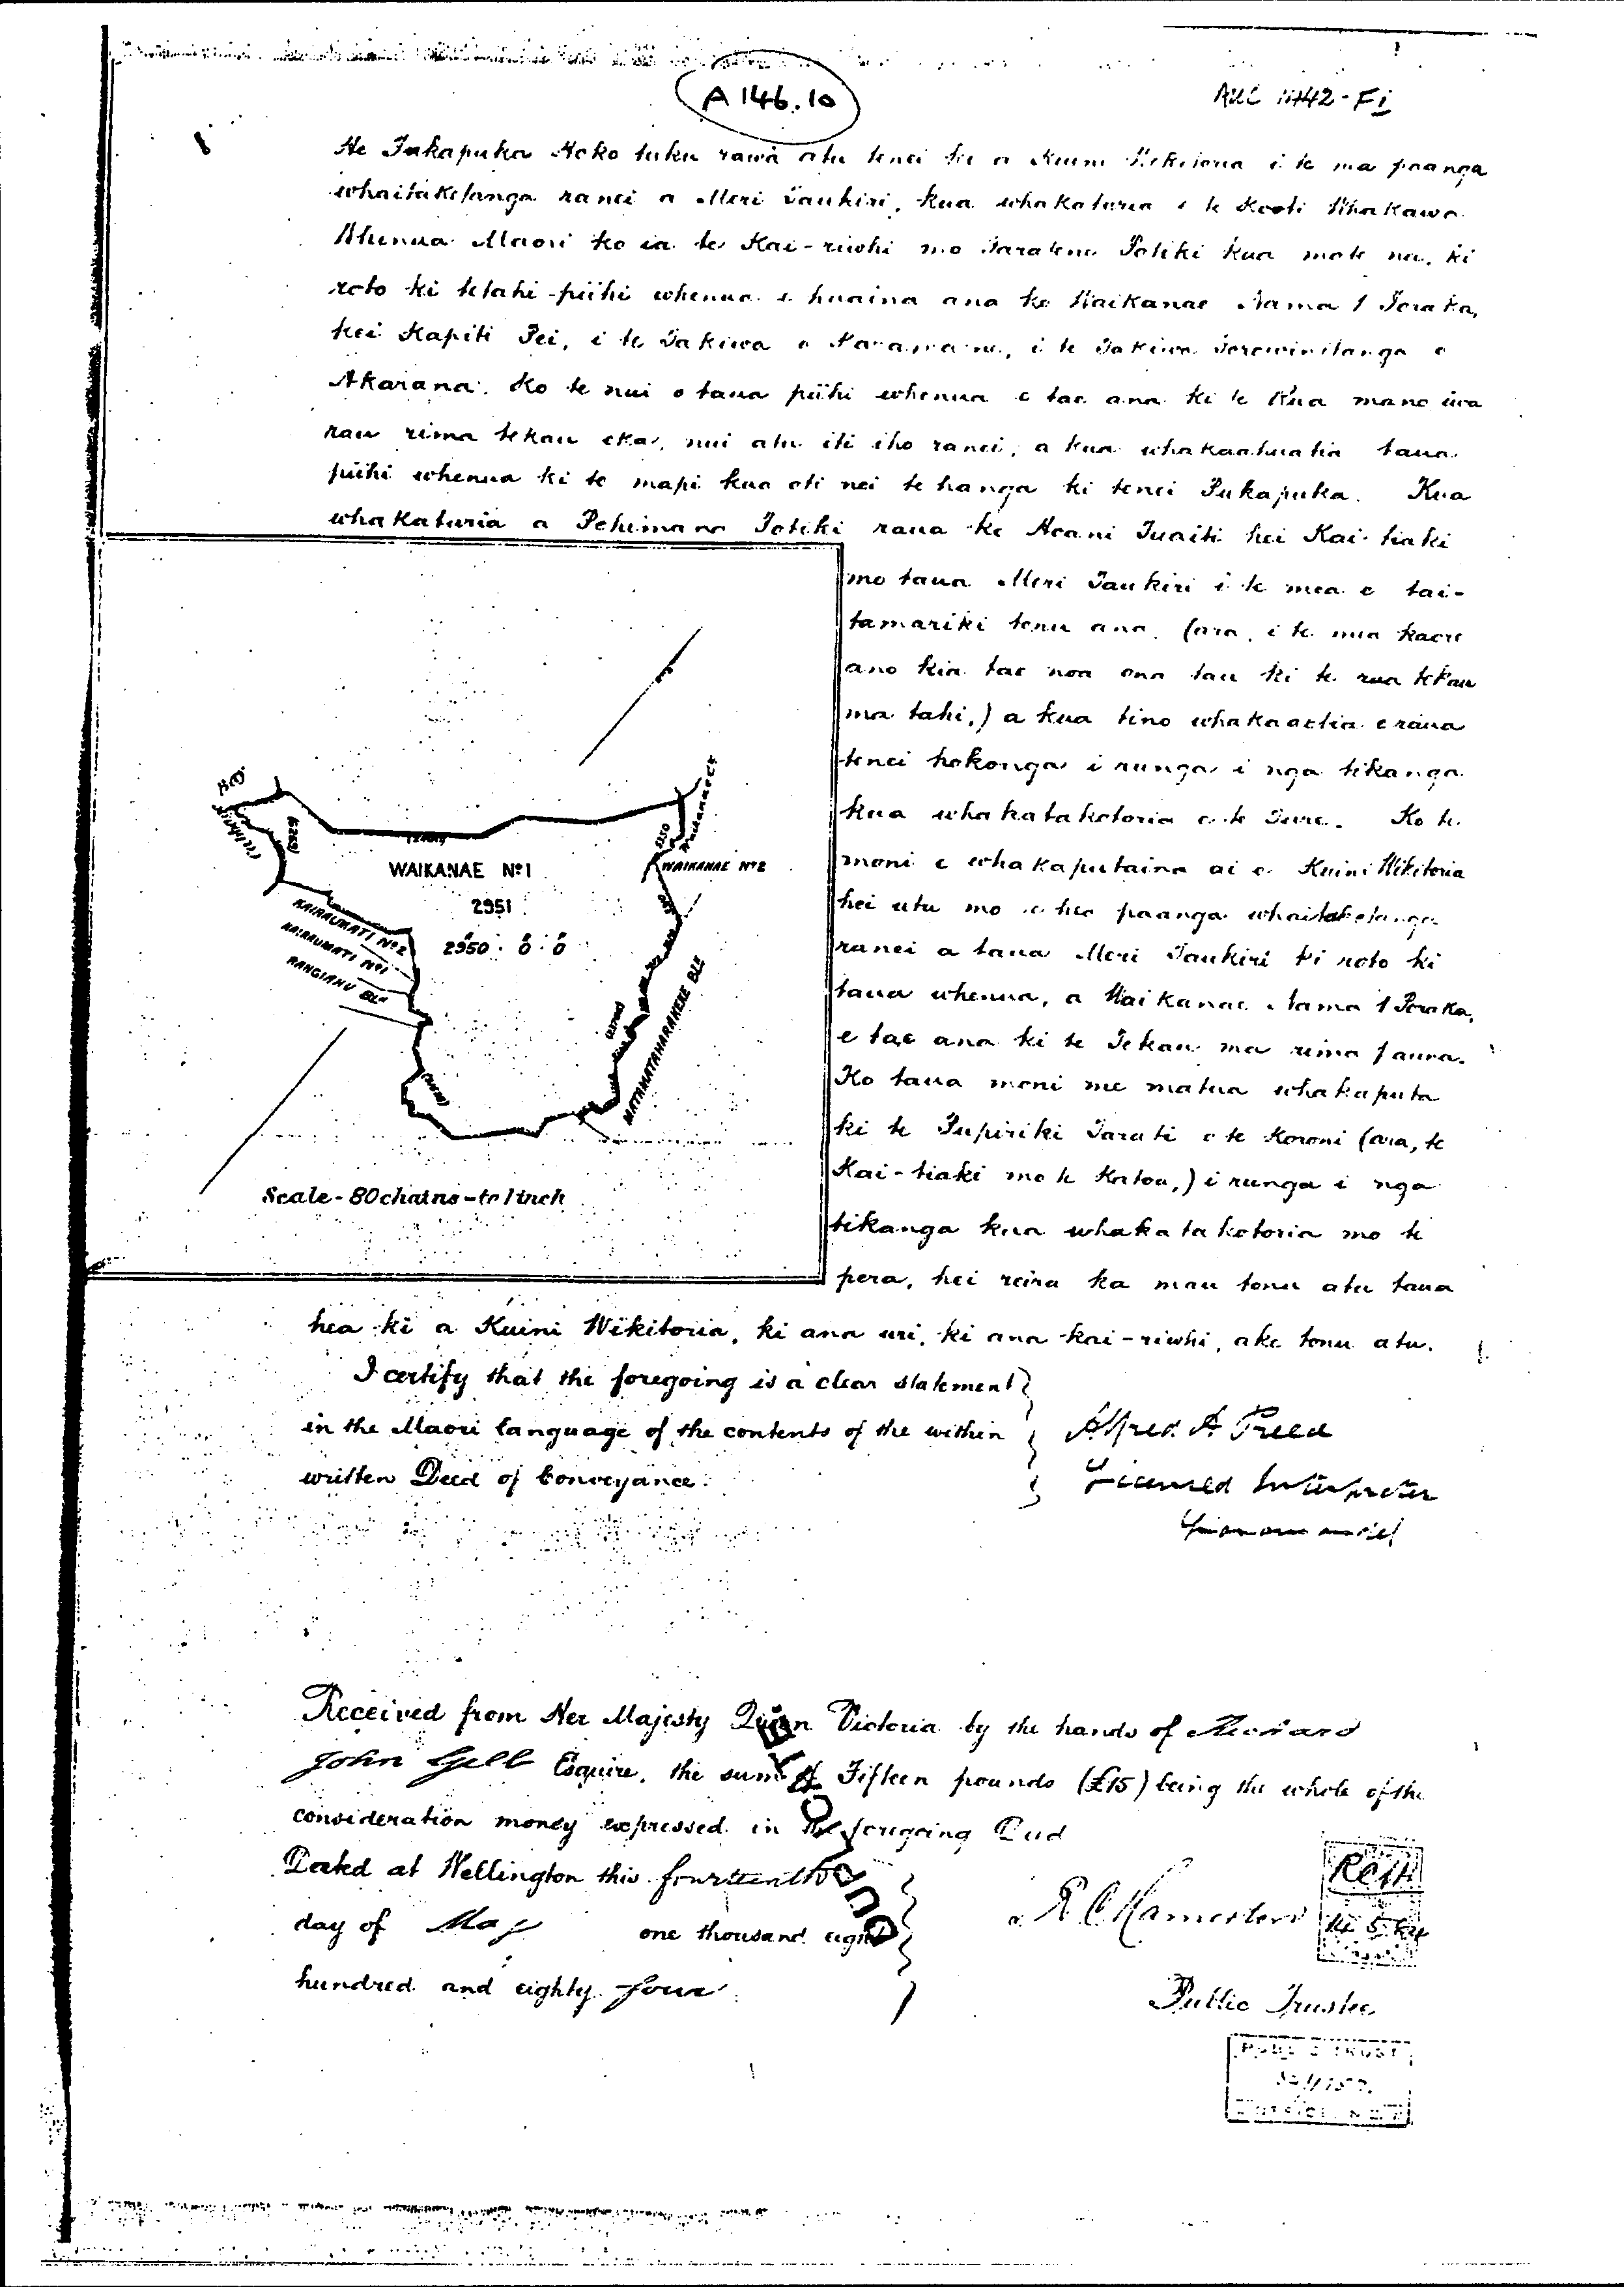 A 146.10
He Pukapuka Hoko tuku rawa atu tenei ki a Kuini Wikitoria i te ma paanga
whaitaketanga ranei a Meri Taukiri, kua whakaturia e te Kooti Whakawa
Whenua Maori ko ia te Kai-riiwhi mo Potiki kua mate nei, ki
roto ki tetahi piihi whenua e huaina ana ko Waikanae Nama 1 Poraka,
kei Kapiti Pei, i te Takiwa o i te Takiwa Porowinitanga o
Akarana. Ko te nui o taua piihi whenua e tae ana ki te Rua mano iwa
rau rima tekau eka, nui atu iti iho ranei, a kua whakaaturia taua
piihi whenua ki te mapi kua oti nei te hanga ki tenei Pukapuka. Kua
whakaturia a Pehimana Potiki raua ko Hoani Tuaiti hei Kai-tiaki
mo taua Meri Taukiri i te mea e tai-
tamariki tonu ana, (ara, i te mea kaore
ano kia tae noa ona tau ki te rua tekau
ma tahi,) a kua tino whakaaetia e raua
tenei hokonga i runga i nga tikanga
kua whakatakotoria e te Ture. Ko te
moni e whakaputaina ai e Kuini Wikitoria
hei utu mo te hea paanga whaitaketanga
ranei a taua Meri Taukiri ki roto ki
taua whenua, a Waikanae Nama 1 Poraka,
e tae ana ki te Tekau ma rima pauna.
Ko taua moni me matua whakaputa
ki te Tupiriki Tarati o te Koroni (ara, te
Kai-tiaki mo te Katoa,) i runga i nga
tikanga kua whakatakotoria mo te
pera, hei reira ka mau tonu atu taua
hea ki a Kuini Wikitoria, ki ana uri, ki ana kai-riiwhi, ake tonu atu.
WAIKANAE No 1
2951
2950 : 0 : 0
WAIKANAE No 2
KAIRAUMATI No 2
KAIRAUMATI No 1
RANGIAHU BLK
MATAMATAHARAKEKE BLK
Scale - 80 chains - to 1 inch
I certify that the foregoing is a clear statement
in the Maori language of the contents of the within
written Deed of Conveyance.
Alfred A Preece
Licensed Interpreter
Received from Her Majesty Queen Victoria by the hands of Richard
John Gill Esquire, the sum of Fifteen pounds (£15) being the whole of the
consideration money expressed in the foregoing Deed
Dated at Wellington this fourteenth
day of May one thousand eight
hundred and eighty four
R C Hamerton
RCH
14.5.84
Public Trustee
PUBLIC TRUST